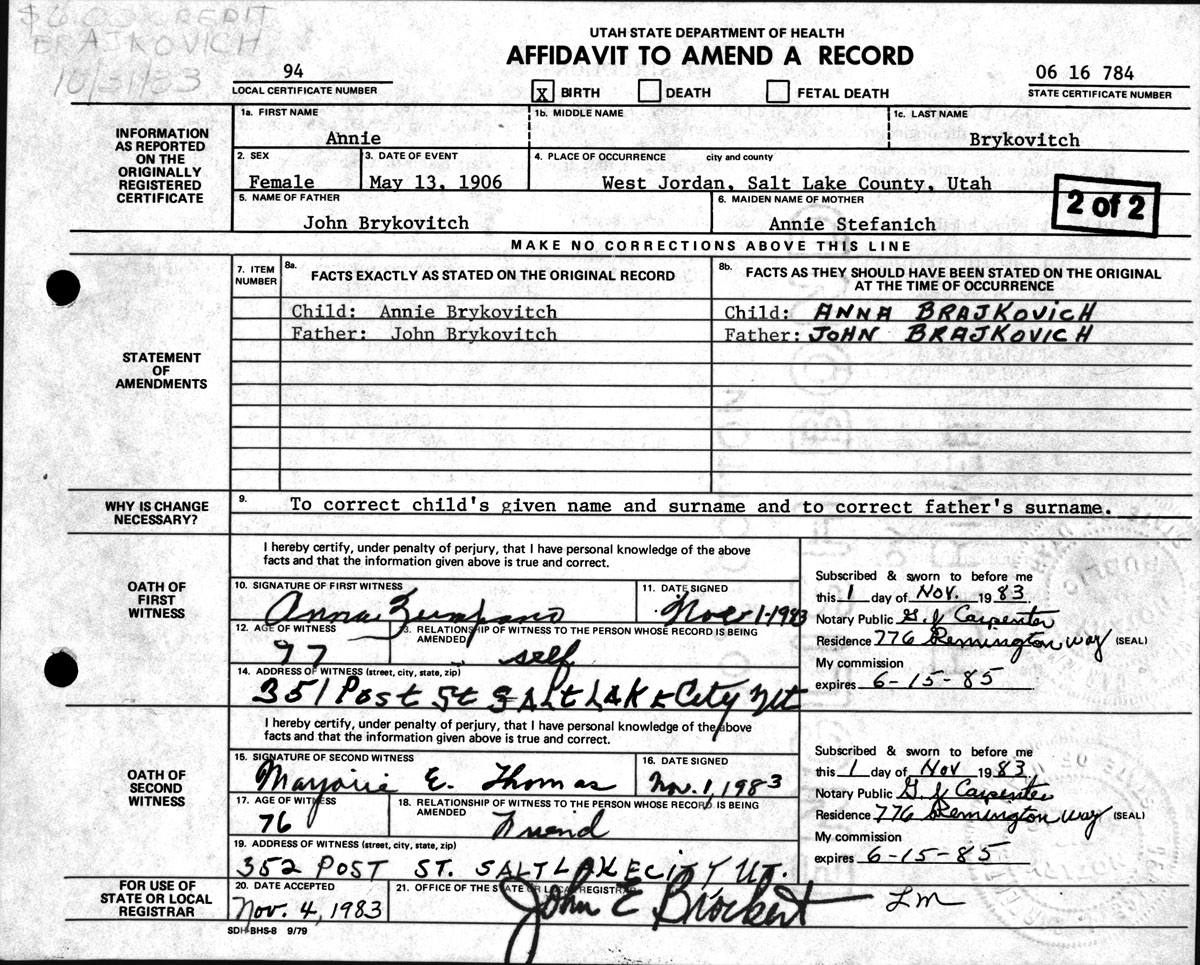 $6.00 CREDIT
BRAJKOVICH
10/31/83
UTAH STATE DEPARTMENT OF HEALTH
AFFIDAVIT TO AMEND A RECORD
94
LOCAL CERTIFICATE NUMBER
X BIRTH DEATH FETAL DEATH
06 16 784
STATE CERTIFICATE NUMBER
INFORMATION AS REPORTED ON THE ORIGINALLY REGISTERED CERTIFICATE
1a. FIRST NAME 1b. MIDDLE NAME 1c. LAST NAME
Annie Brykovitch
2. SEX 3. DATE OF EVENT 4. PLACE OF OCCURRENCE city and county
Female May 13, 1906 West Jordan, Salt Lake County, Utah
5. NAME OF FATHER 6. MAIDEN NAME OF MOTHER
John Brykovitch Annie Stefanich
2 of 2
MAKE NO CORRECTIONS ABOVE THIS LINE
STATEMENT OF AMENDMENTS
7. ITEM NUMBER
8a. FACTS EXACTLY AS STATED ON THE ORIGINAL RECORD
8b. FACTS AS THEY SHOULD HAVE BEEN STATED ON THE ORIGINAL
AT THE TIME OF OCCURRENCE
Child: Annie Brykovitch Child: ANNA BRAJKOVICH
Father: John Brykovitch Father: JOHN BRAJKOVICH
WHY IS CHANGE NECESSARY?
9. To correct child's given name and surname and to correct father's surname.
OATH OF FIRST WITNESS
I hereby certify, under penalty of perjury, that I have personal knowledge of the above
facts and that the information given above is true and correct.
10. SIGNATURE OF FIRST WITNESS 11. DATE SIGNED
Anna Zumpano Nov-1-1983
12. AGE OF WITNESS 13. RELATIONSHIP OF WITNESS TO THE PERSON WHOSE RECORD IS BEING AMENDED
77 self
14. ADDRESS OF WITNESS (street, city, state, zip)
351 Post St SALT LAKE City Ut
Subscribed & sworn to before me
this 1 day of Nov. 1983
Notary Public G. J Carpenter
Residence 776 Remington Way (SEAL)
My commission
expires 6-15-85
OATH OF SECOND WITNESS
I hereby certify, under penalty of perjury, that I have personal knowledge of the above
facts and that the information given above is true and correct.
15. SIGNATURE OF SECOND WITNESS 16. DATE SIGNED
Marjorie E. Thomas Nov. 1, 1983
17. AGE OF WITNESS 18. RELATIONSHIP OF WITNESS TO THE PERSON WHOSE RECORD IS BEING AMENDED
76 Friend
19. ADDRESS OF WITNESS (street, city, state, zip)
352 POST ST. SALT LAKE CITY UT.
Subscribed & sworn to before me
this 1 day of Nov 1983
Notary Public G. J Carpenter
Residence 776 Remington Way (SEAL)
My commission
expires 6-15-85
FOR USE OF STATE OR LOCAL REGISTRAR
20. DATE ACCEPTED 21. OFFICE OF THE STATE OR LOCAL REGISTRAR
Nov. 4, 1983 John E Brockert LM
SDH-BHS-8 9/79